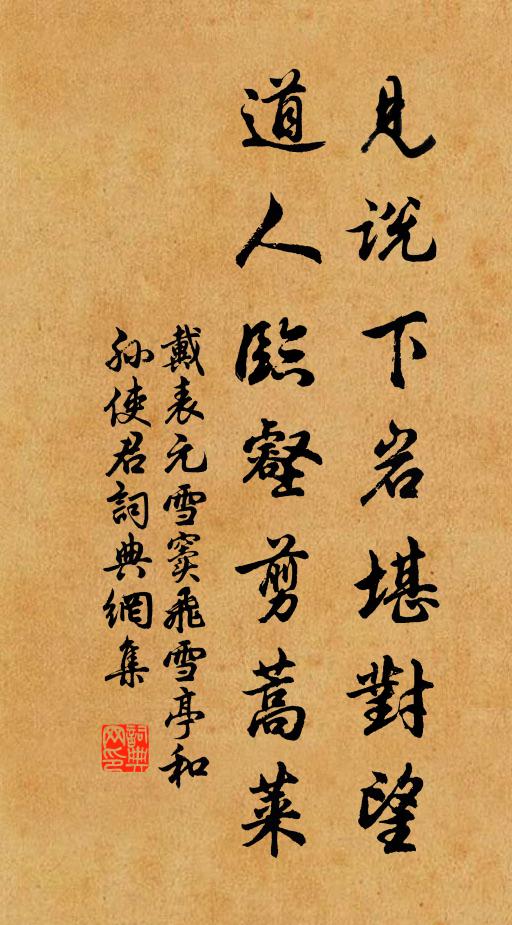 見説下岩堪對望
道人臨壑剪蒿萊
戴表元雪竇飛雪亭和
孫使君詞典網集
詞典
网印